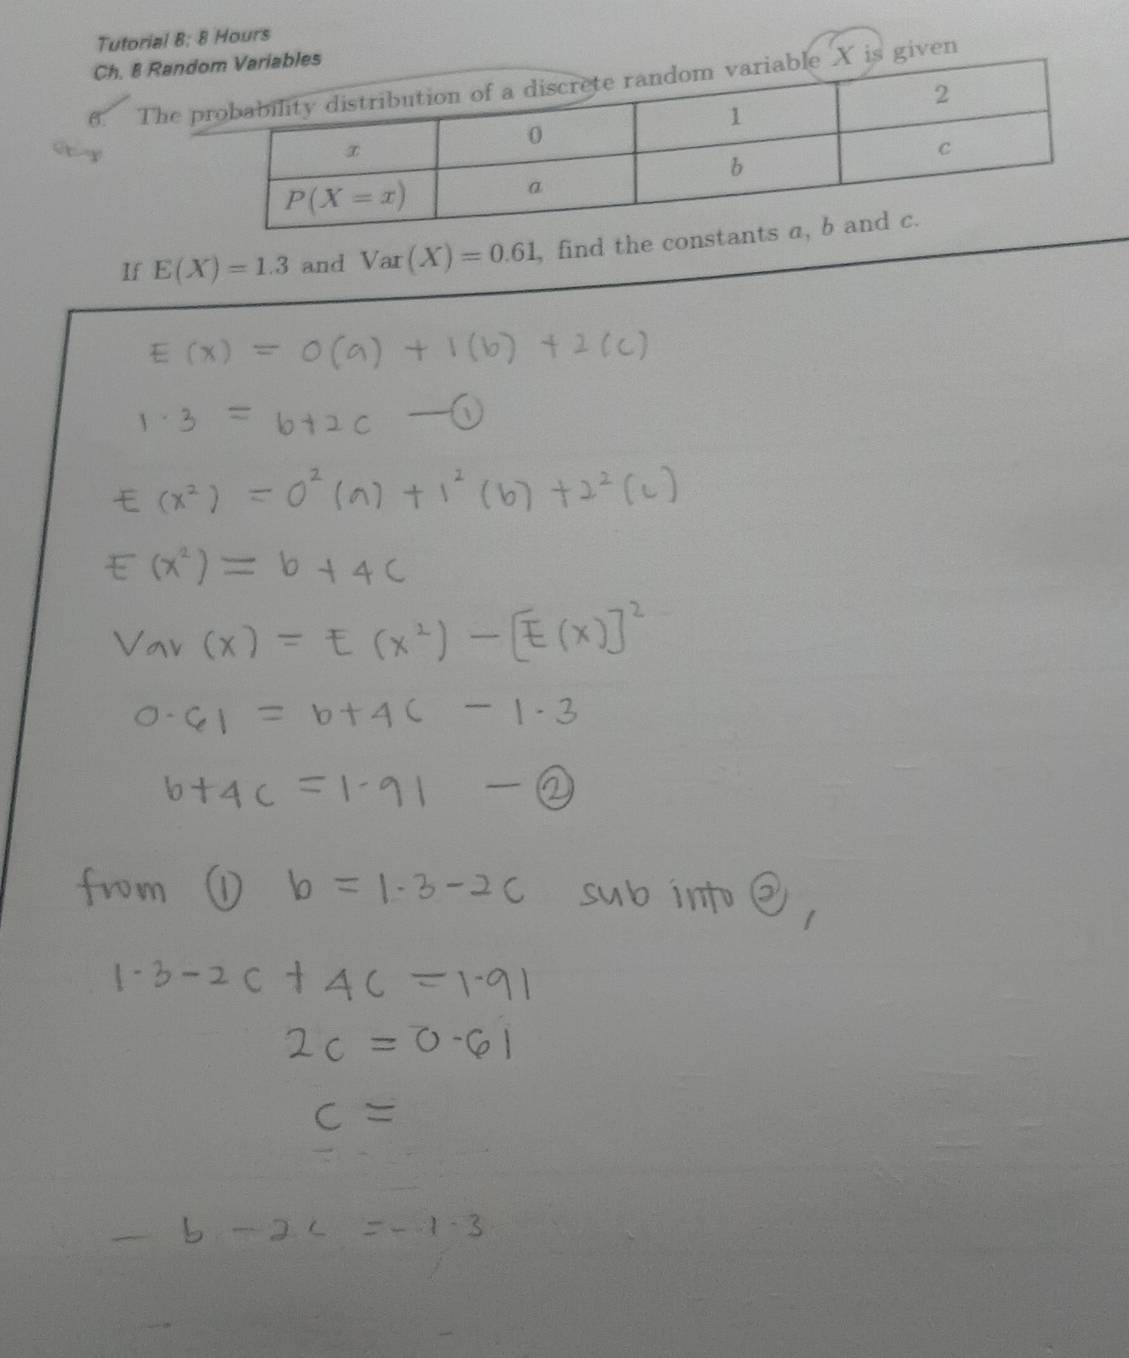 Tutorial 8: 8 Hours
Ch. 8 Random Variables
6. The probability distribution of a discrete random variable X is given
x 0 1 2
P(X = x) a b c
If E(X) = 1.3 and Var(X) = 0.61, find the constants a, b and c.
E(x) = 0(a) + 1(b) + 2(c)
1.3 = b+2c —①
E(x²) = 0²(a) + 1²(b) + 2²(c)
E(x²) = b + 4c
Var(x) = E(x²) - [E(x)]²
0.61 = b+4c - 1.3
b+4c = 1.91 —②
from ① b = 1.3-2c sub into ②,
1.3-2c + 4c = 1.91
2c = 0.61
c =
- b - 2c = -1.3